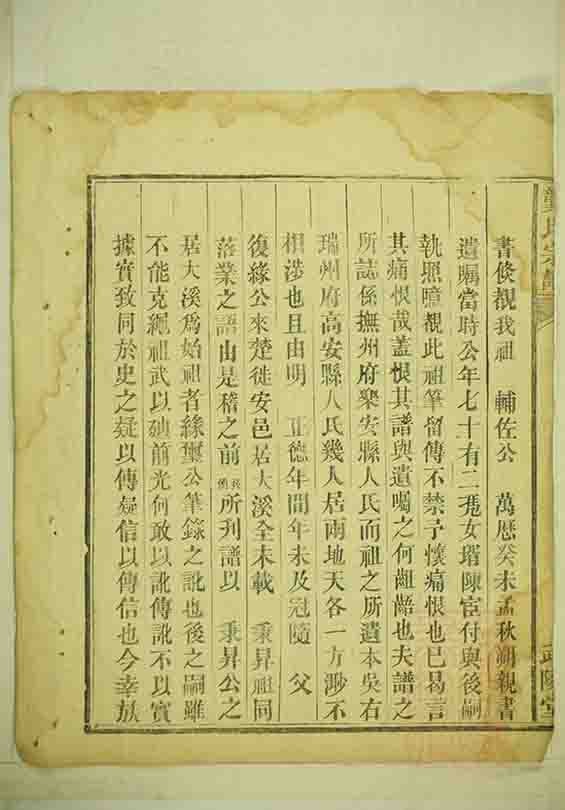 書倐覩我祖　輔佐公　萬歷癸未孟秋朔親書
遺囑當時公年七十有二憑女壻陳宦付與後嗣
執照曈覩此祖筆留傳不禁予懷痛恨也巳曷言
其痛恨哉蓋恨其譜與遺囑之何齟齬也夫譜之
所誌係撫州府樂安縣人氏而祖之所遺本吳右
瑞州府高安縣人氏幾人居兩地天各一方渺不
相涉也且由明　正德年間年未及冠隨　父
復緣公來楚徙安邑居大溪全未載　秉昇祖同
落業之語由是稽之前　所刋譜以　秉昇公之
居大溪爲始祖者緣璽公筆錄之訛也後之嗣雖
不能克繩祖武以廸前光何敢以訛傳訛不以實
據實致同於史之疑以傳疑信以傳信也今幸族
氏宗譜
武陵堂